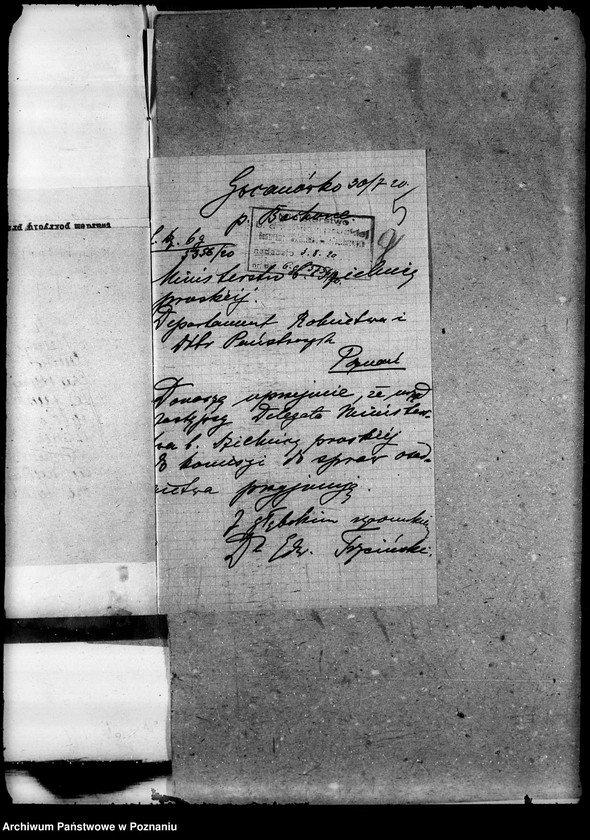 Gocanówko 30/7 20.
5
p.
Ministerstwo
L. dz. 6a
5356/20
3.8.20
Ministerstwo b. Dzielnicy
pruskiej
Departament Rolnictwa i
Dóbr Państwowych
Poznań
Donoszę uprzejmie, że
zastępcy Delegata Minister-
twa b. Dzielnicy pruskiej
do komisji do spraw osad-
nictwa przyjmuję.
Z głębokim szacunkiem
Dr Edw. Trzciński.
Archiwum Państwowe w Poznaniu